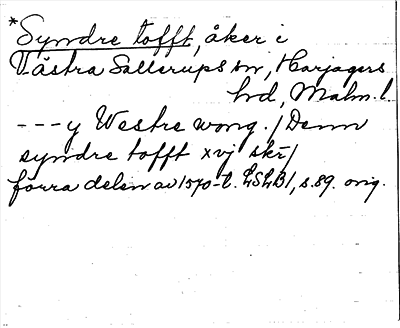 *Syndre tofft, åker i
Västra Sallerups sn, Harjagers
hd, Malm. l.
--- y Westre wong. / Denn
syndre tofft xvj skr/
förra delen av 1570-t. LSLB1, s. 89. orig.